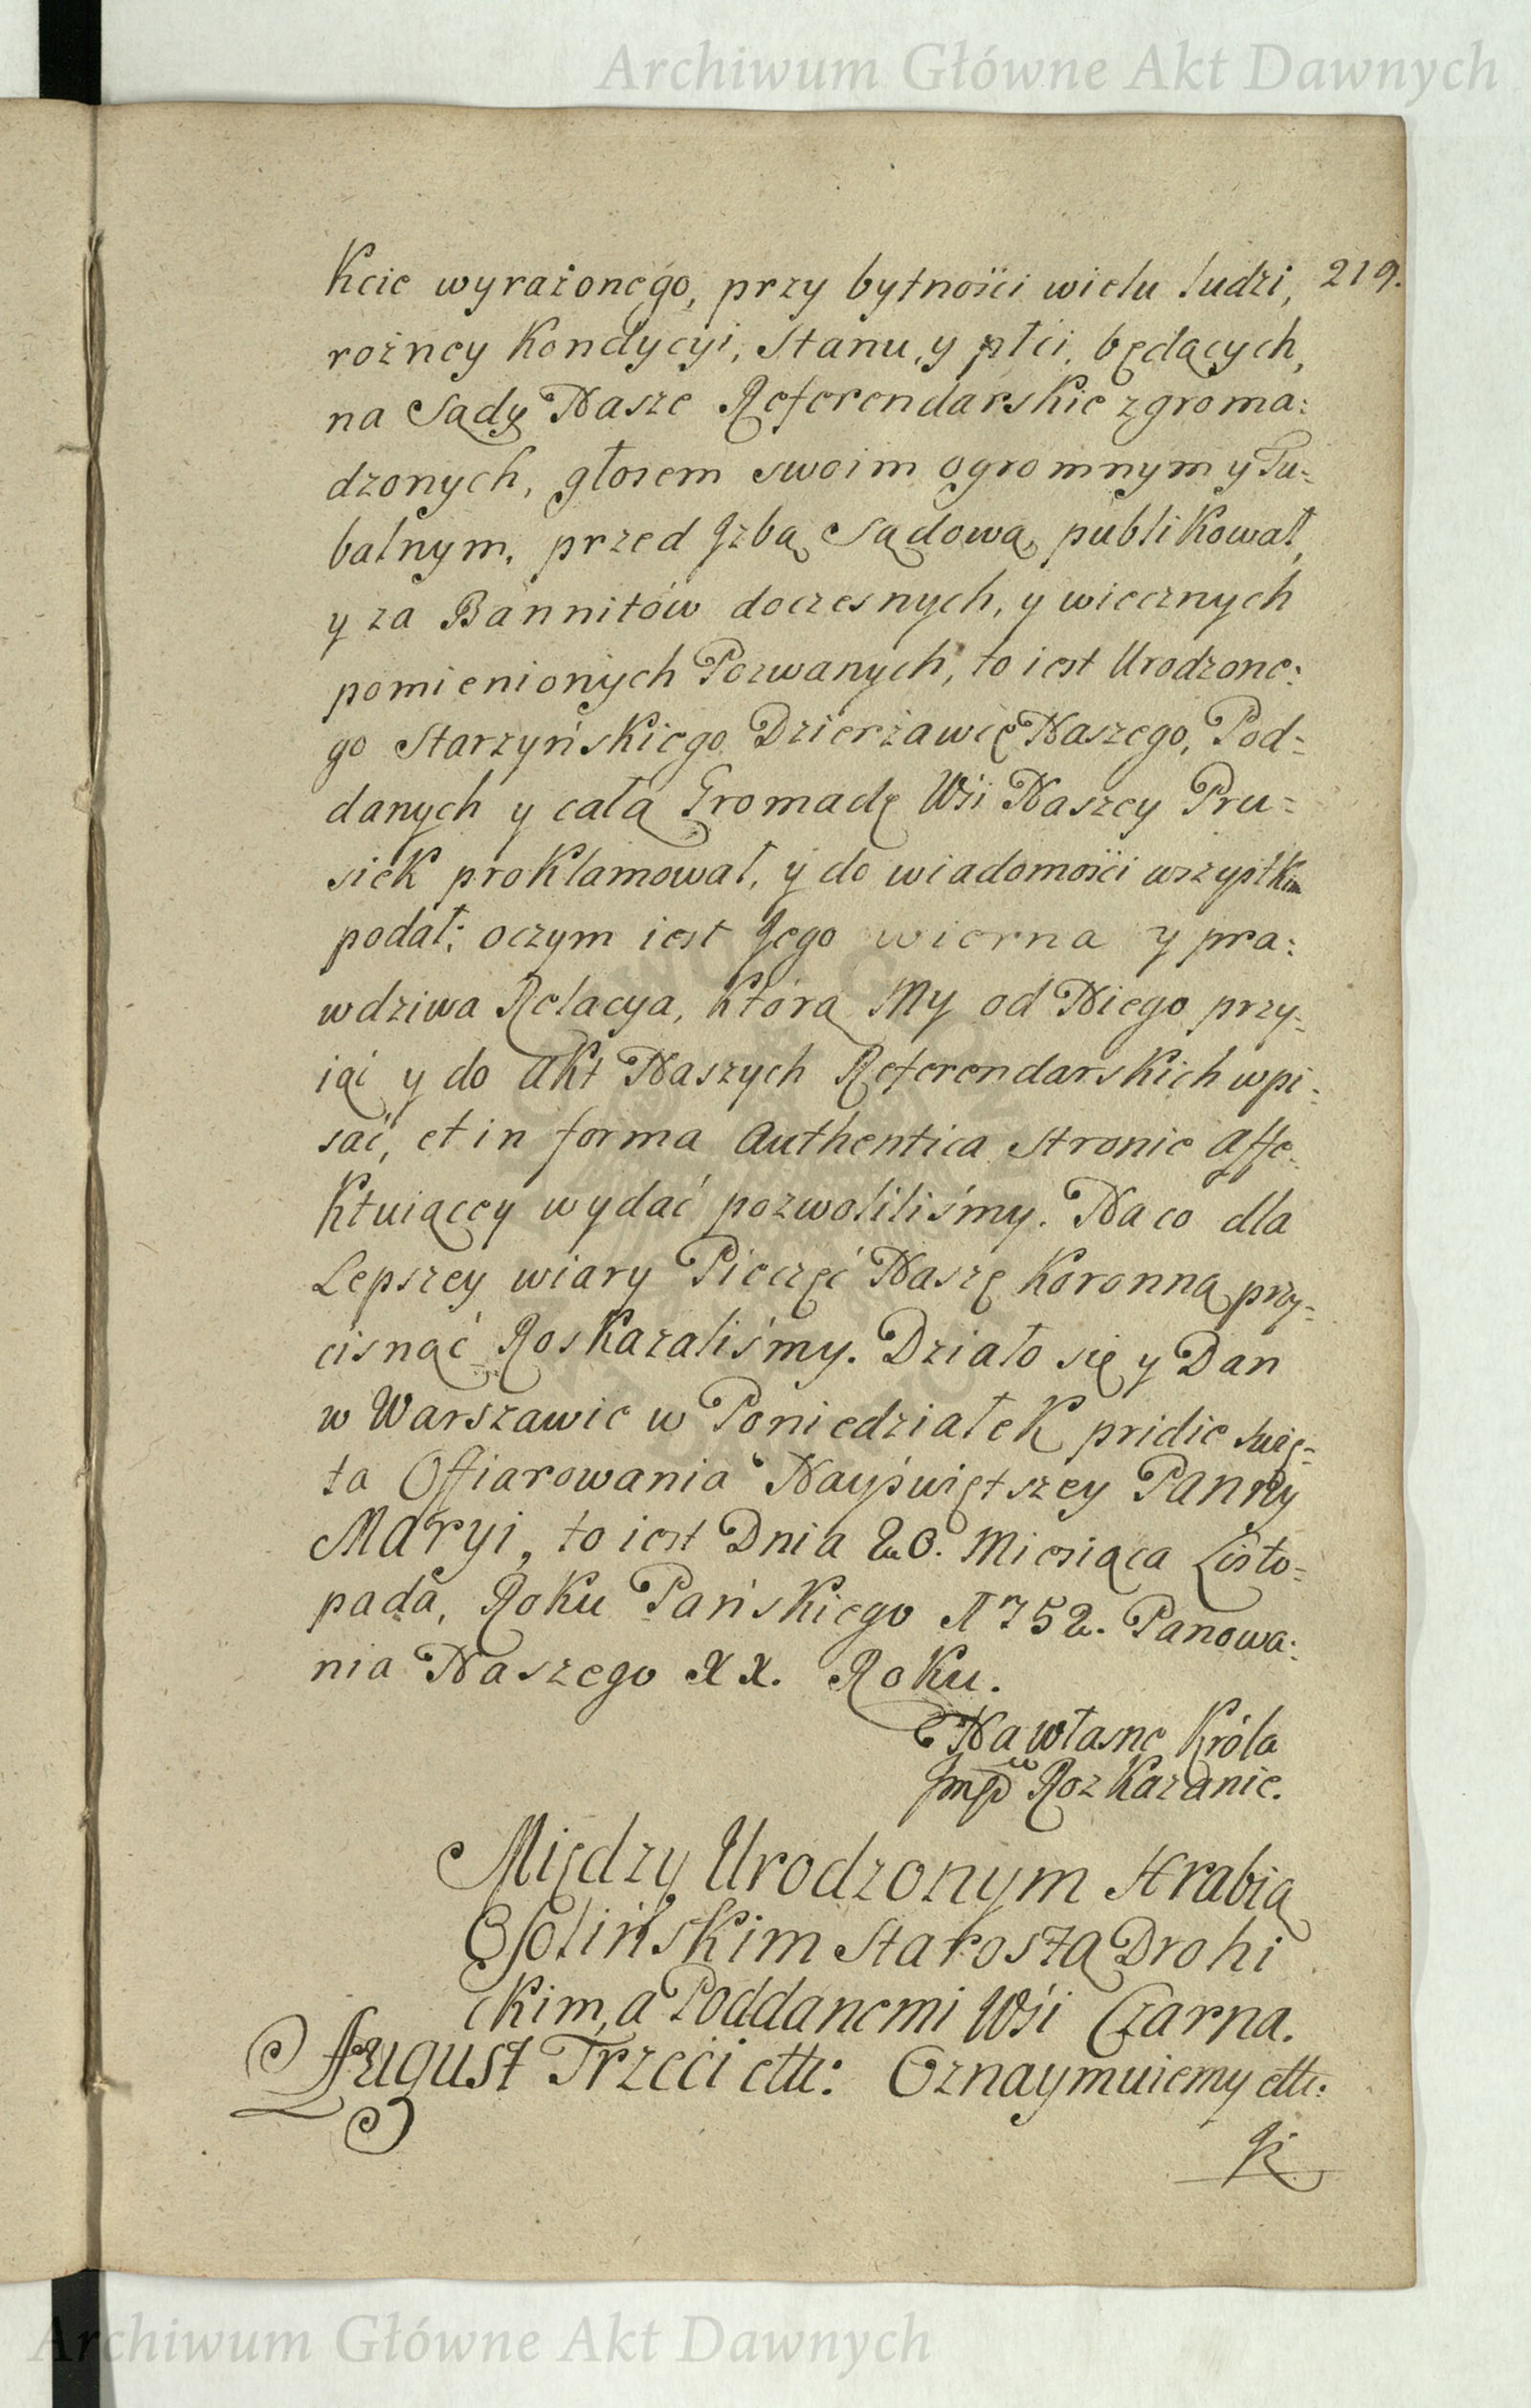 Archiwum Główne Akt Dawnych
219.
Kcie wyrażonego, przy bytności wielu ludzi,
rożney Kondycyi, Stanu, y płci, będących,
na Sądy Nasze Referendarskie zgroma:
dzonych, głosem swoim ogromnym y Tu-
balnym, przed Izbą Sądową publikował,
y za Bannitów doczesnych, y wiecznych
pomienionych Pozwanych, to iest Urodzone:
go Starzyńskiego Dzierżawcę Naszego, Pod-
danych y całą Gromadę Wsi Naszey Pru-
siek proklamował, y do wiadomości wszystkim
podał; oczym iest Jego wierna y pra:
wdziwa Relacya, którą My od Niego przy-
iąć y do Akt Naszych Referendarskich wpi-
sać, et in forma Authentica stronie affe-
ktuiącey wydać pozwoliliśmy. Na co dla
Lepszey wiary Pieczęć Naszę Koronną przy-
cisnąć Roskazaliśmy. Działo się y Dan
w Warszawie w Poniedziałek pridie Świę-
ta Offiarowania Nayświętszey Panny
Maryi, to iest Dnia 20. Miesiąca Listo-
pada, Roku Pańskiego 1752. Panowa:
nia Naszego XX. Roku.
Na własne Króla
Jmści Rozkazanie.
Między Urodzonym Hrabią
Ossolińskim Starostą Drohi
ckim, a Poddanemi Wsi Czarna.
August Trzeci ettc: Oznaymuiemy ettc:
Archiwum Główne Akt Dawnych